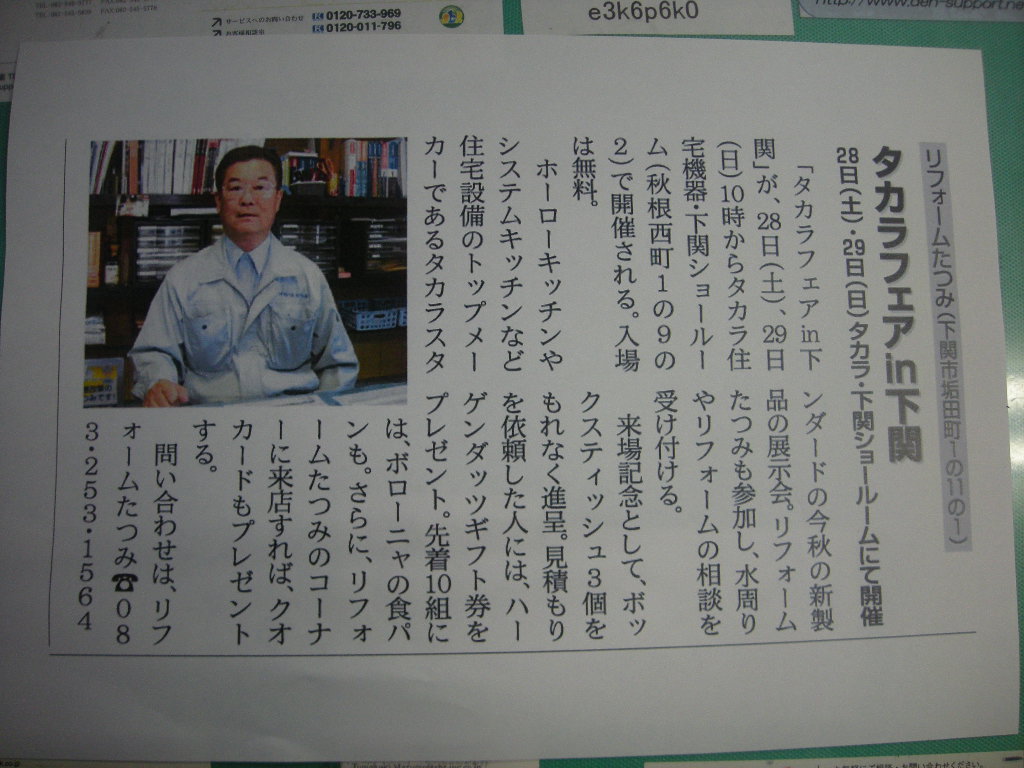 サービスへのお問い合わせ
0120-733-969
お客様相談室
0120-011-796
e3k6p6k0
http://www.den-support.ne
リフォームたつみ(下関市垢田町1の11の1)
タカラフェアin下関
28日(土)・29日(日)タカラ・下関ショールームにて開催
「タカラフェアin下
関」が、28日(土)、29日
(日)10時からタカラ住
宅機器・下関ショールー
ム(秋根西町1の9の
2)で開催される。入場
は無料。
ホーローキッチンや
システムキッチンなど
住宅設備のトップメー
カーであるタカラスタ
ンダードの今秋の新製
品の展示会。リフォーム
たつみも参加し、水周り
やリフォームの相談を
受け付ける。
来場記念として、ボッ
クスティッシュ3個を
もれなく進呈。見積もり
を依頼した人には、ハー
ゲンダッツギフト券を
プレゼント。先着10組に
は、ボローニャの食パ
ンも。さらに、リフォ
ームたつみのコーナ
ーに来店すれば、クオ
カードもプレゼント
する。
問い合わせは、リフ
ォームたつみ☎08
3・253・1564